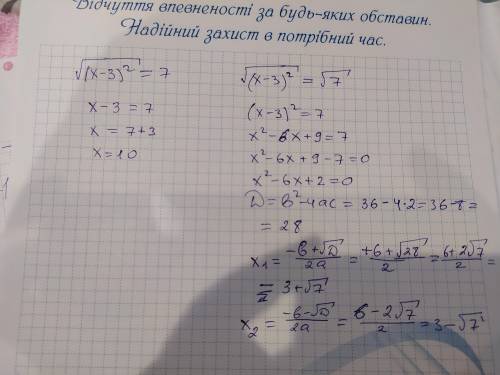 Відчуття впевненості за будь-яких обставин.
Надійний захист в потрібний час.
√(x-3)² = 7
x-3 = 7
x = 7+3
x = 10
√(x-3)² = √7
(x-3)² = 7
x²-6x+9 = 7
x²-6x+9-7=0
x²-6x+2=0
D = b²-4ac = 36-4·2 = 36-8 =
= 28
x₁ = (-b+√D)/2a = (+6+√28)/2 = (6+2√7)/2 =
= 3+√7
x₂ = (-b-√D)/2a = (6-2√7)/2 = 3-√7